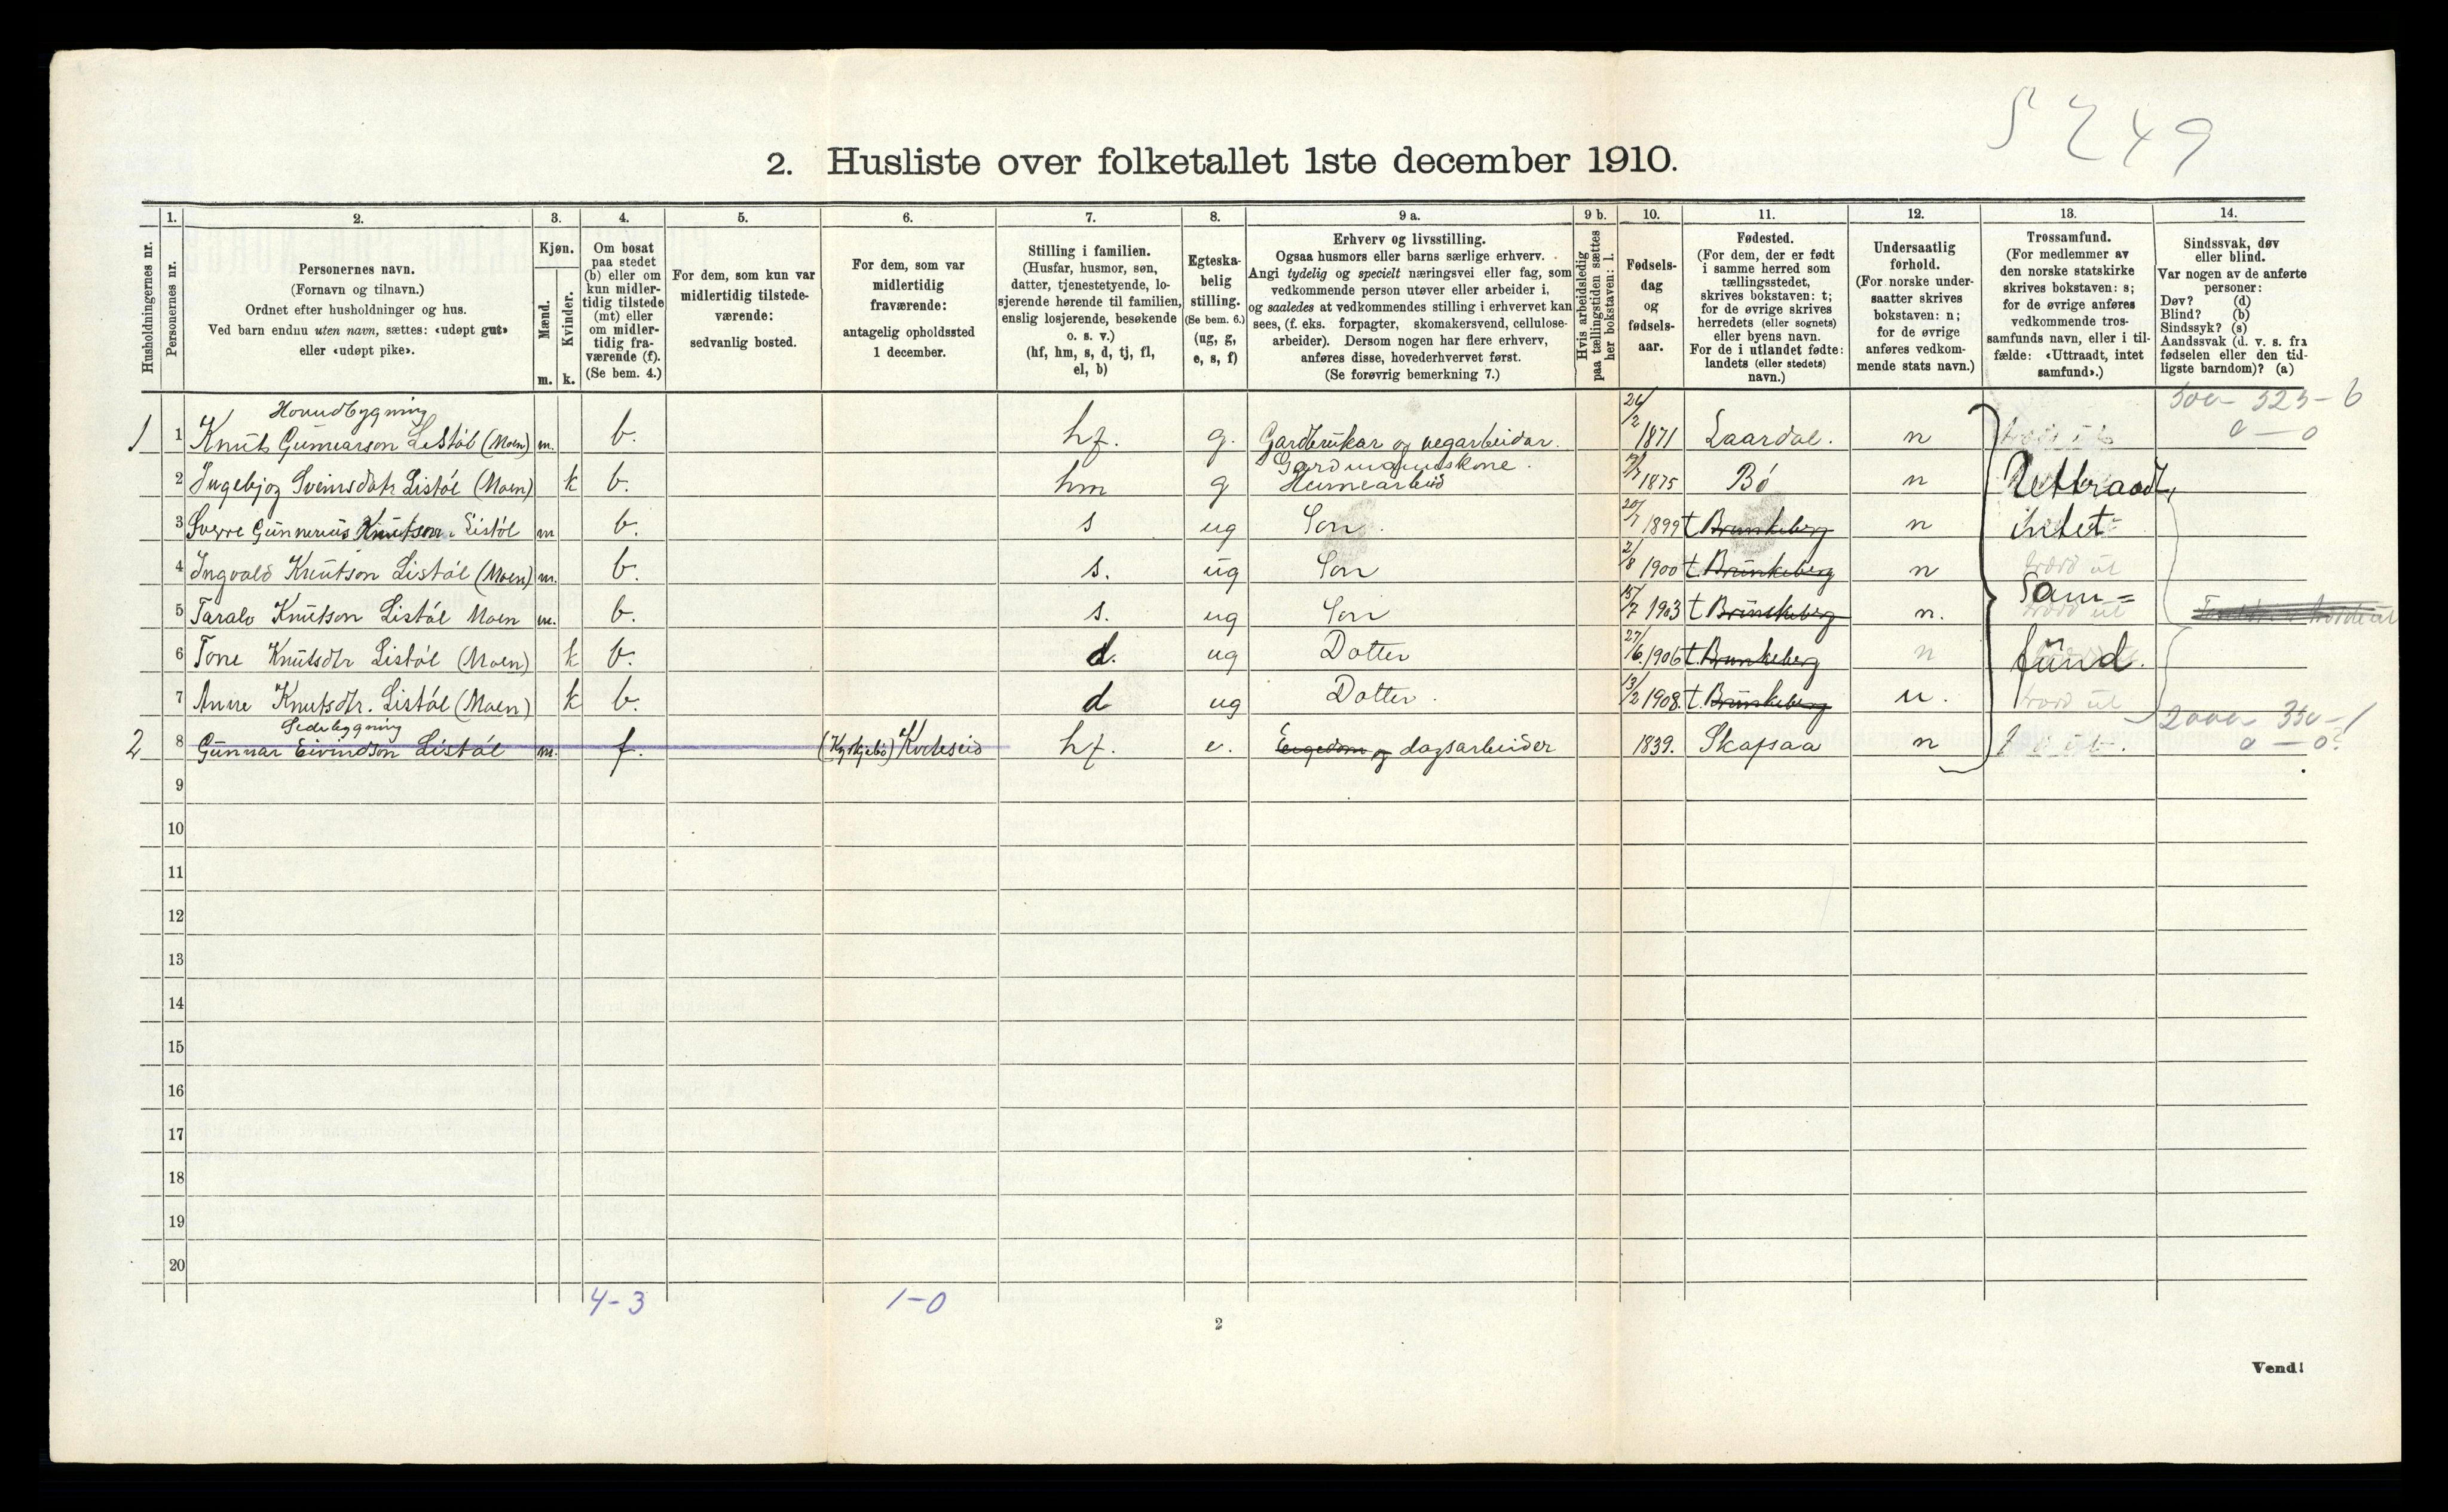 5249
2. Husliste over folketallet 1ste december 1910.
Husholdningernes nr.
1.
Personernes nr.
2.
Personernes navn.
(Fornavn og tilnavn.)
Ordnet efter husholdninger og hus.
Ved barn endnu uten navn, sættes: «udøpt gut»
eller «udøpt pike».
3.
Kjøn.
Mænd.
Kvinder.
m. k.
4.
Om bosat
paa stedet
(b) eller om
kun midler-
tidig tilstede
(mt) eller
om midler-
tidig fra-
værende (f).
(Se bem. 4.)
5.
For dem, som kun var
midlertidig tilstede-
værende:
sedvanlig bosted.
6.
For dem, som var
midlertidig
fraværende:
antagelig opholdssted
1 december.
7.
Stilling i familien.
(Husfar, husmor, søn,
datter, tjenestetyende, lo-
sjerende hørende til familien,
enslig losjerende, besøkende
o. s. v.)
(hf, hm, s, d, tj, fl,
el, b)
8.
Egteska-
belig
stilling.
(Se bem. 6.)
(ug, g,
e, s, f)
9 a.
Erhverv og livsstilling.
Ogsaa husmors eller barns særlige erhverv.
Angi tydelig og specielt næringsvei eller fag, som
vedkommende person utøver eller arbeider i,
og saaledes at vedkommendes stilling i erhvervet kan
sees, (f. eks. forpagter, skomakersvend, cellulose-
arbeider). Dersom nogen har flere erhverv,
anføres disse, hovederhvervet først.
(Se forøvrig bemerkning 7.)
9 b.
Hvis arbeidsledig
paa tællingstiden sættes
her bokstaven: l.
10.
Fødsels-
dag
og
fødsels-
aar.
11.
Fødested.
(For dem, der er født
i samme herred som
tællingsstedet,
skrives bokstaven: t;
for de øvrige skrives
herredets (eller sognets)
eller byens navn.
For de i utlandet fødte:
landets (eller stedets)
navn.)
12.
Undersaatlig
forhold.
(For norske under-
saatter skrives
bokstaven: n;
for de øvrige
anføres vedkom-
mende stats navn.)
13.
Trossamfund.
(For medlemmer av
den norske statskirke
skrives bokstaven: s;
for de øvrige anføres
vedkommende tros-
samfunds navn, eller i til-
fælde: «Uttraadt, intet
samfund».)
14.
Sindssvak, døv
eller blind.
Var nogen av de anførte
personer:
Døv? (d)
Blind? (b)
Sindssyk? (s)
Aandssvak (d. v. s. fra
fødselen eller den tid-
ligste barndom)? (a)
500 - 525 - 6
0 - 0
Hovudbygning
1 1 Knut Gunnarson Listöl (Moen) m. b. hf. g. Gardbrukar og vegarbeidar. 26/2 1871 Laardal. n
Gardmannskone.
2 Ingebjog Sveinsdatr Listöl (Moen) k b. hm g Heimearbeid 1875 Bö n Uttraadt,
3 Sverre Gunnerius Knutson Listöl m b. s ug Son 20/7 1899 t Brunkeberg n intet
4 Ingvald Knutson Listöl (Moen) m. b. s. ug Son 2/8 1900 t. Brunkeberg n
traad ut
5 Taralv Knutson Listöl Moen m. b. s. ug Son 15/7 1903 t Brunkeberg n. Sam=
6 Tone Knutsdtr Listöl (Moen) k b. d. ug Dotter 27/6 1906 t. Brunkeberg n fund.
7 Anne Knutsdtr. Listöl (Moen) k b. d ug Dotter. 13/2 1908. t. Brunkeberg n.
2000 - 350 - 1
0 - 0?
Sidebygning
2 8 Gunnar Eivindson Listöl m. f. (Kyrkjebö) Kviteseid hf. e. Eigedom og dagsarbeider 1839. Skafsaa n
9
10
11
12
13
14
15
16
17
18
19
20
4-3 1-0
2
Vend!